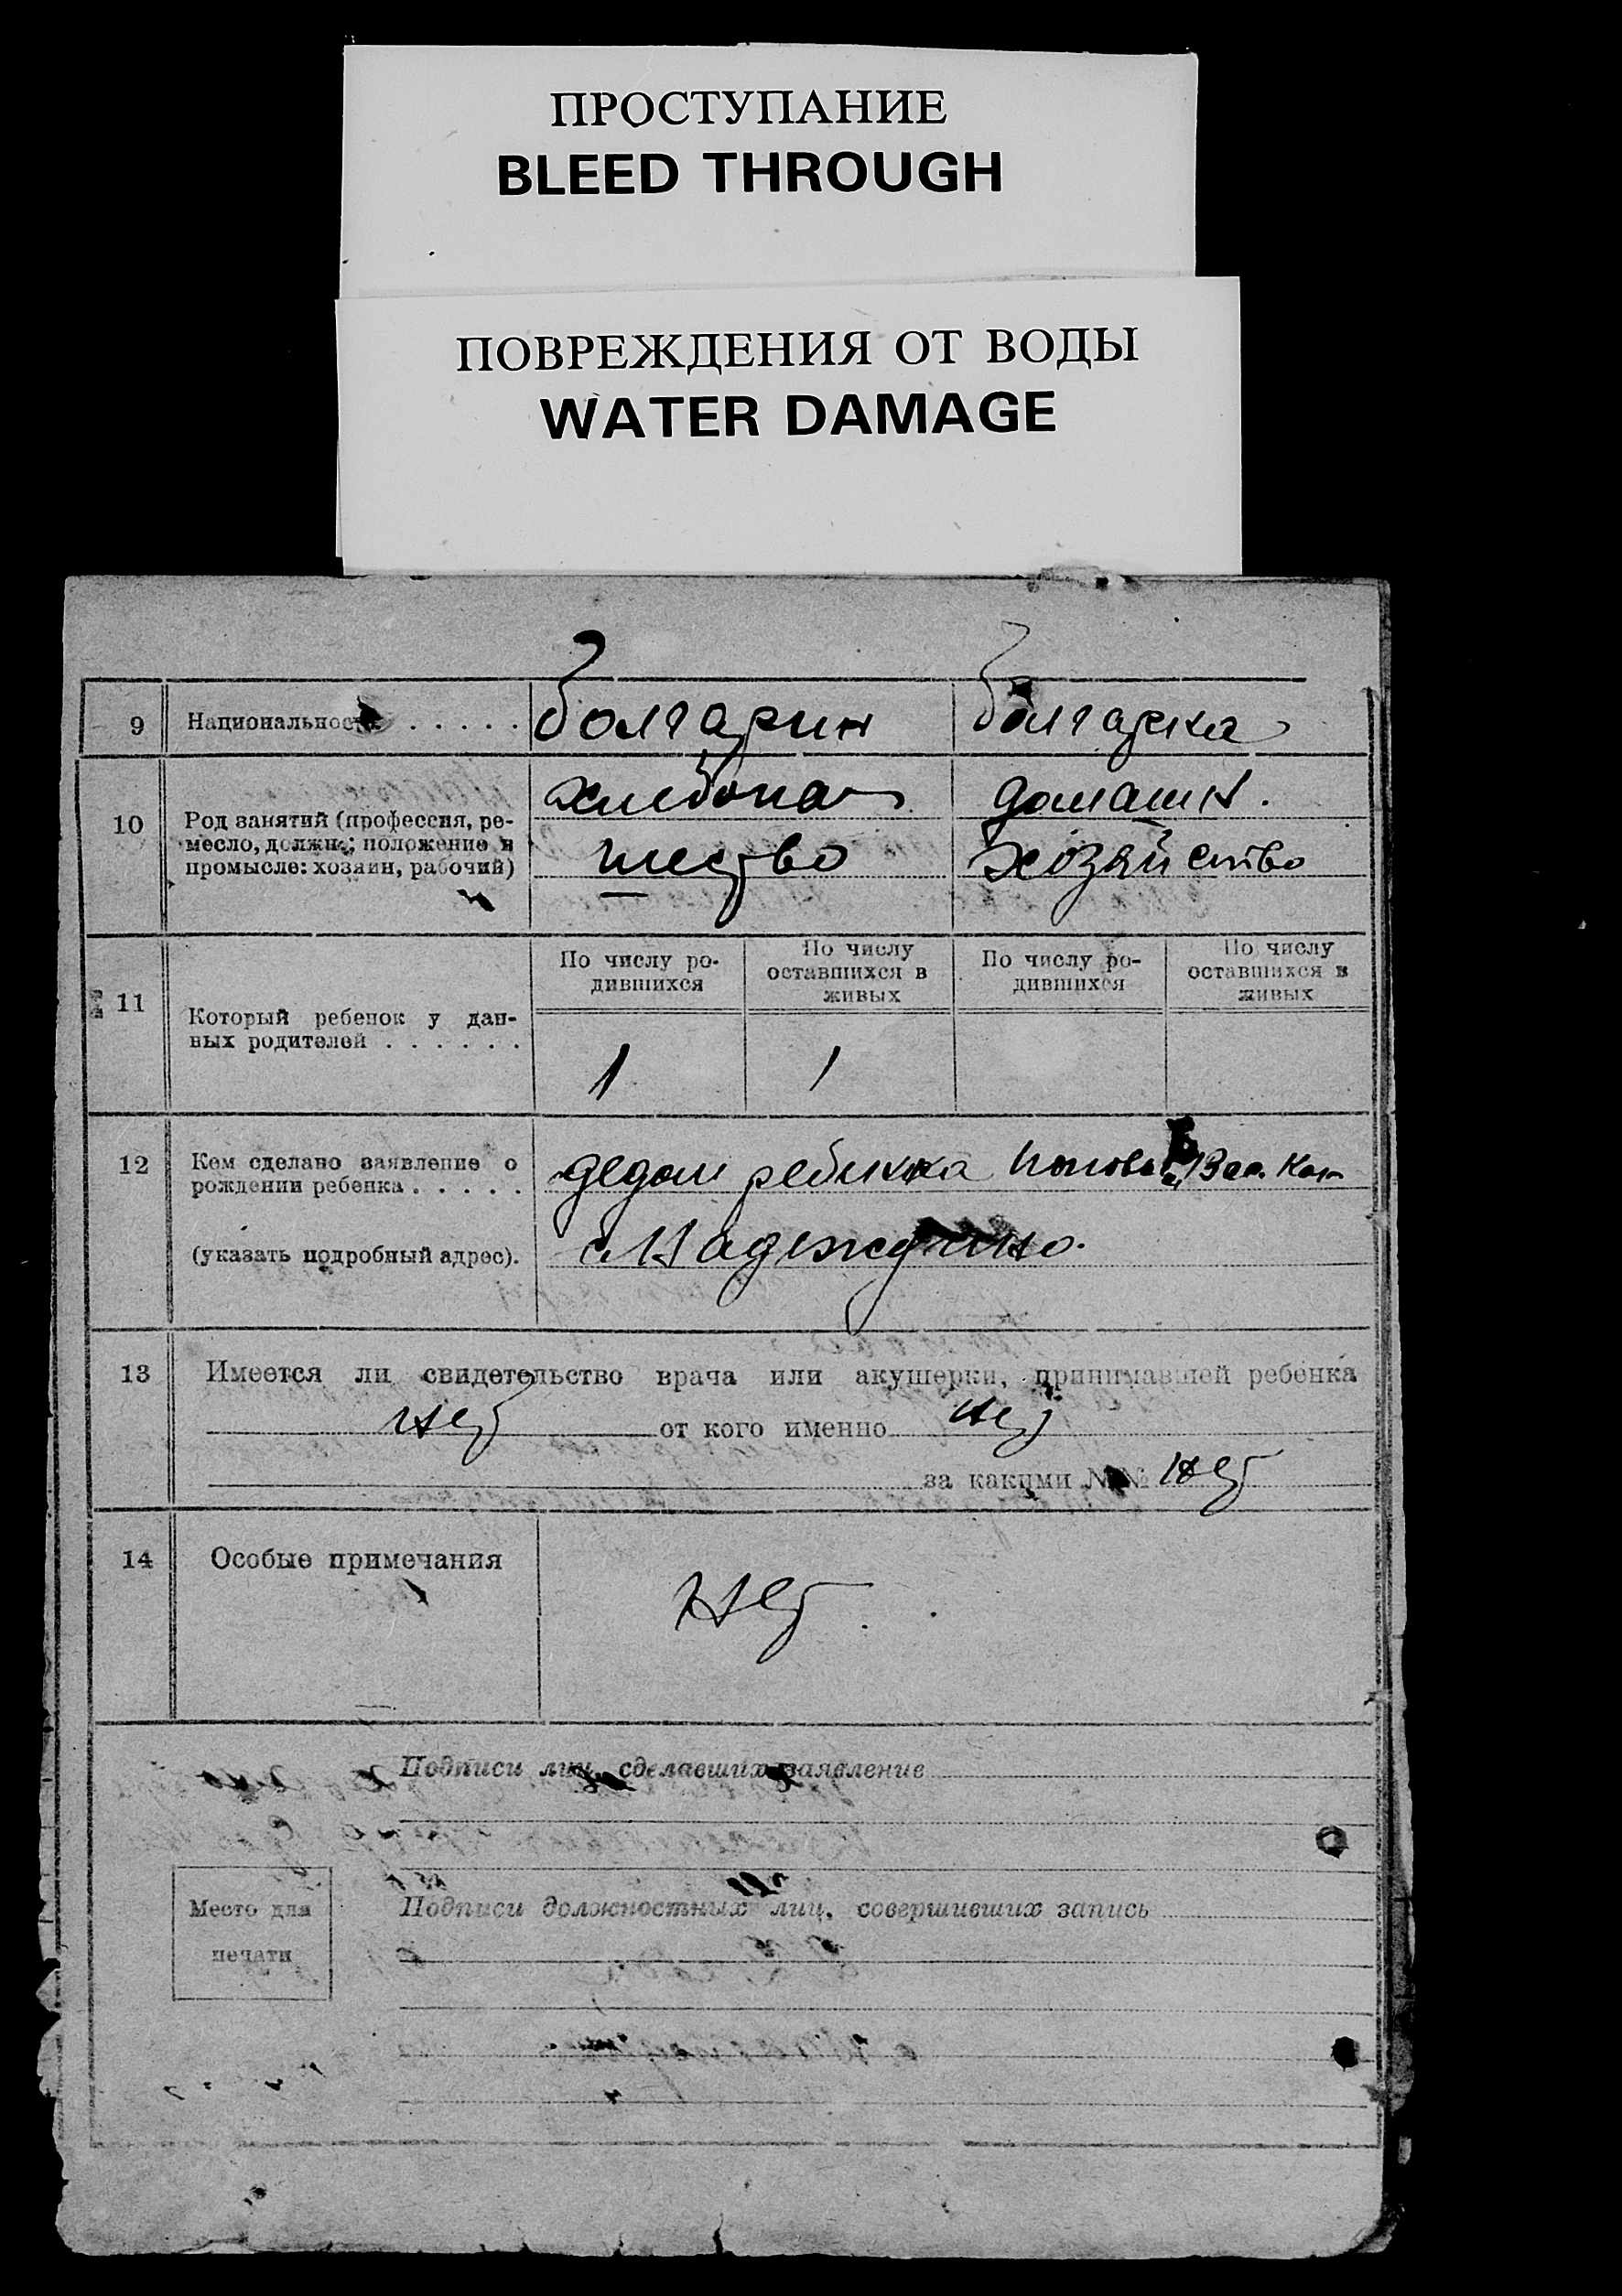 ПРОСТУПАНИЕ
BLEED THROUGH
ПОВРЕЖДЕНИЯ ОТ ВОДЫ
WATER DAMAGE
9 Национальность . . . . . болгарин болгарка
10 Род занятий (профессия, ре-
месло, должн.; положение в
промысле: хозяин, рабочий)
хлебопа
шество
домашн.
хозяйство
11 Который ребенок у дан-
ных родителей . . . . . .
По числу ро-
дившихся
По числу
оставшихся в
живых
По числу ро-
дившихся
По числу
оставшихся в
живых
1 1
12 Кем сделано заявление о
рождении ребенка . . . . .
(указать подробный адрес).
дедом ребенка
с Надеждино.
13 Имеется ли свидетельство врача или акушерки, принимавшей ребенка
нет от кого именно нет
за какими №№ нет
14 Особые примечания нет.
Подписи лиц, сделавших заявление
Место для
печати
Подписи должностных лиц, совершивших запись